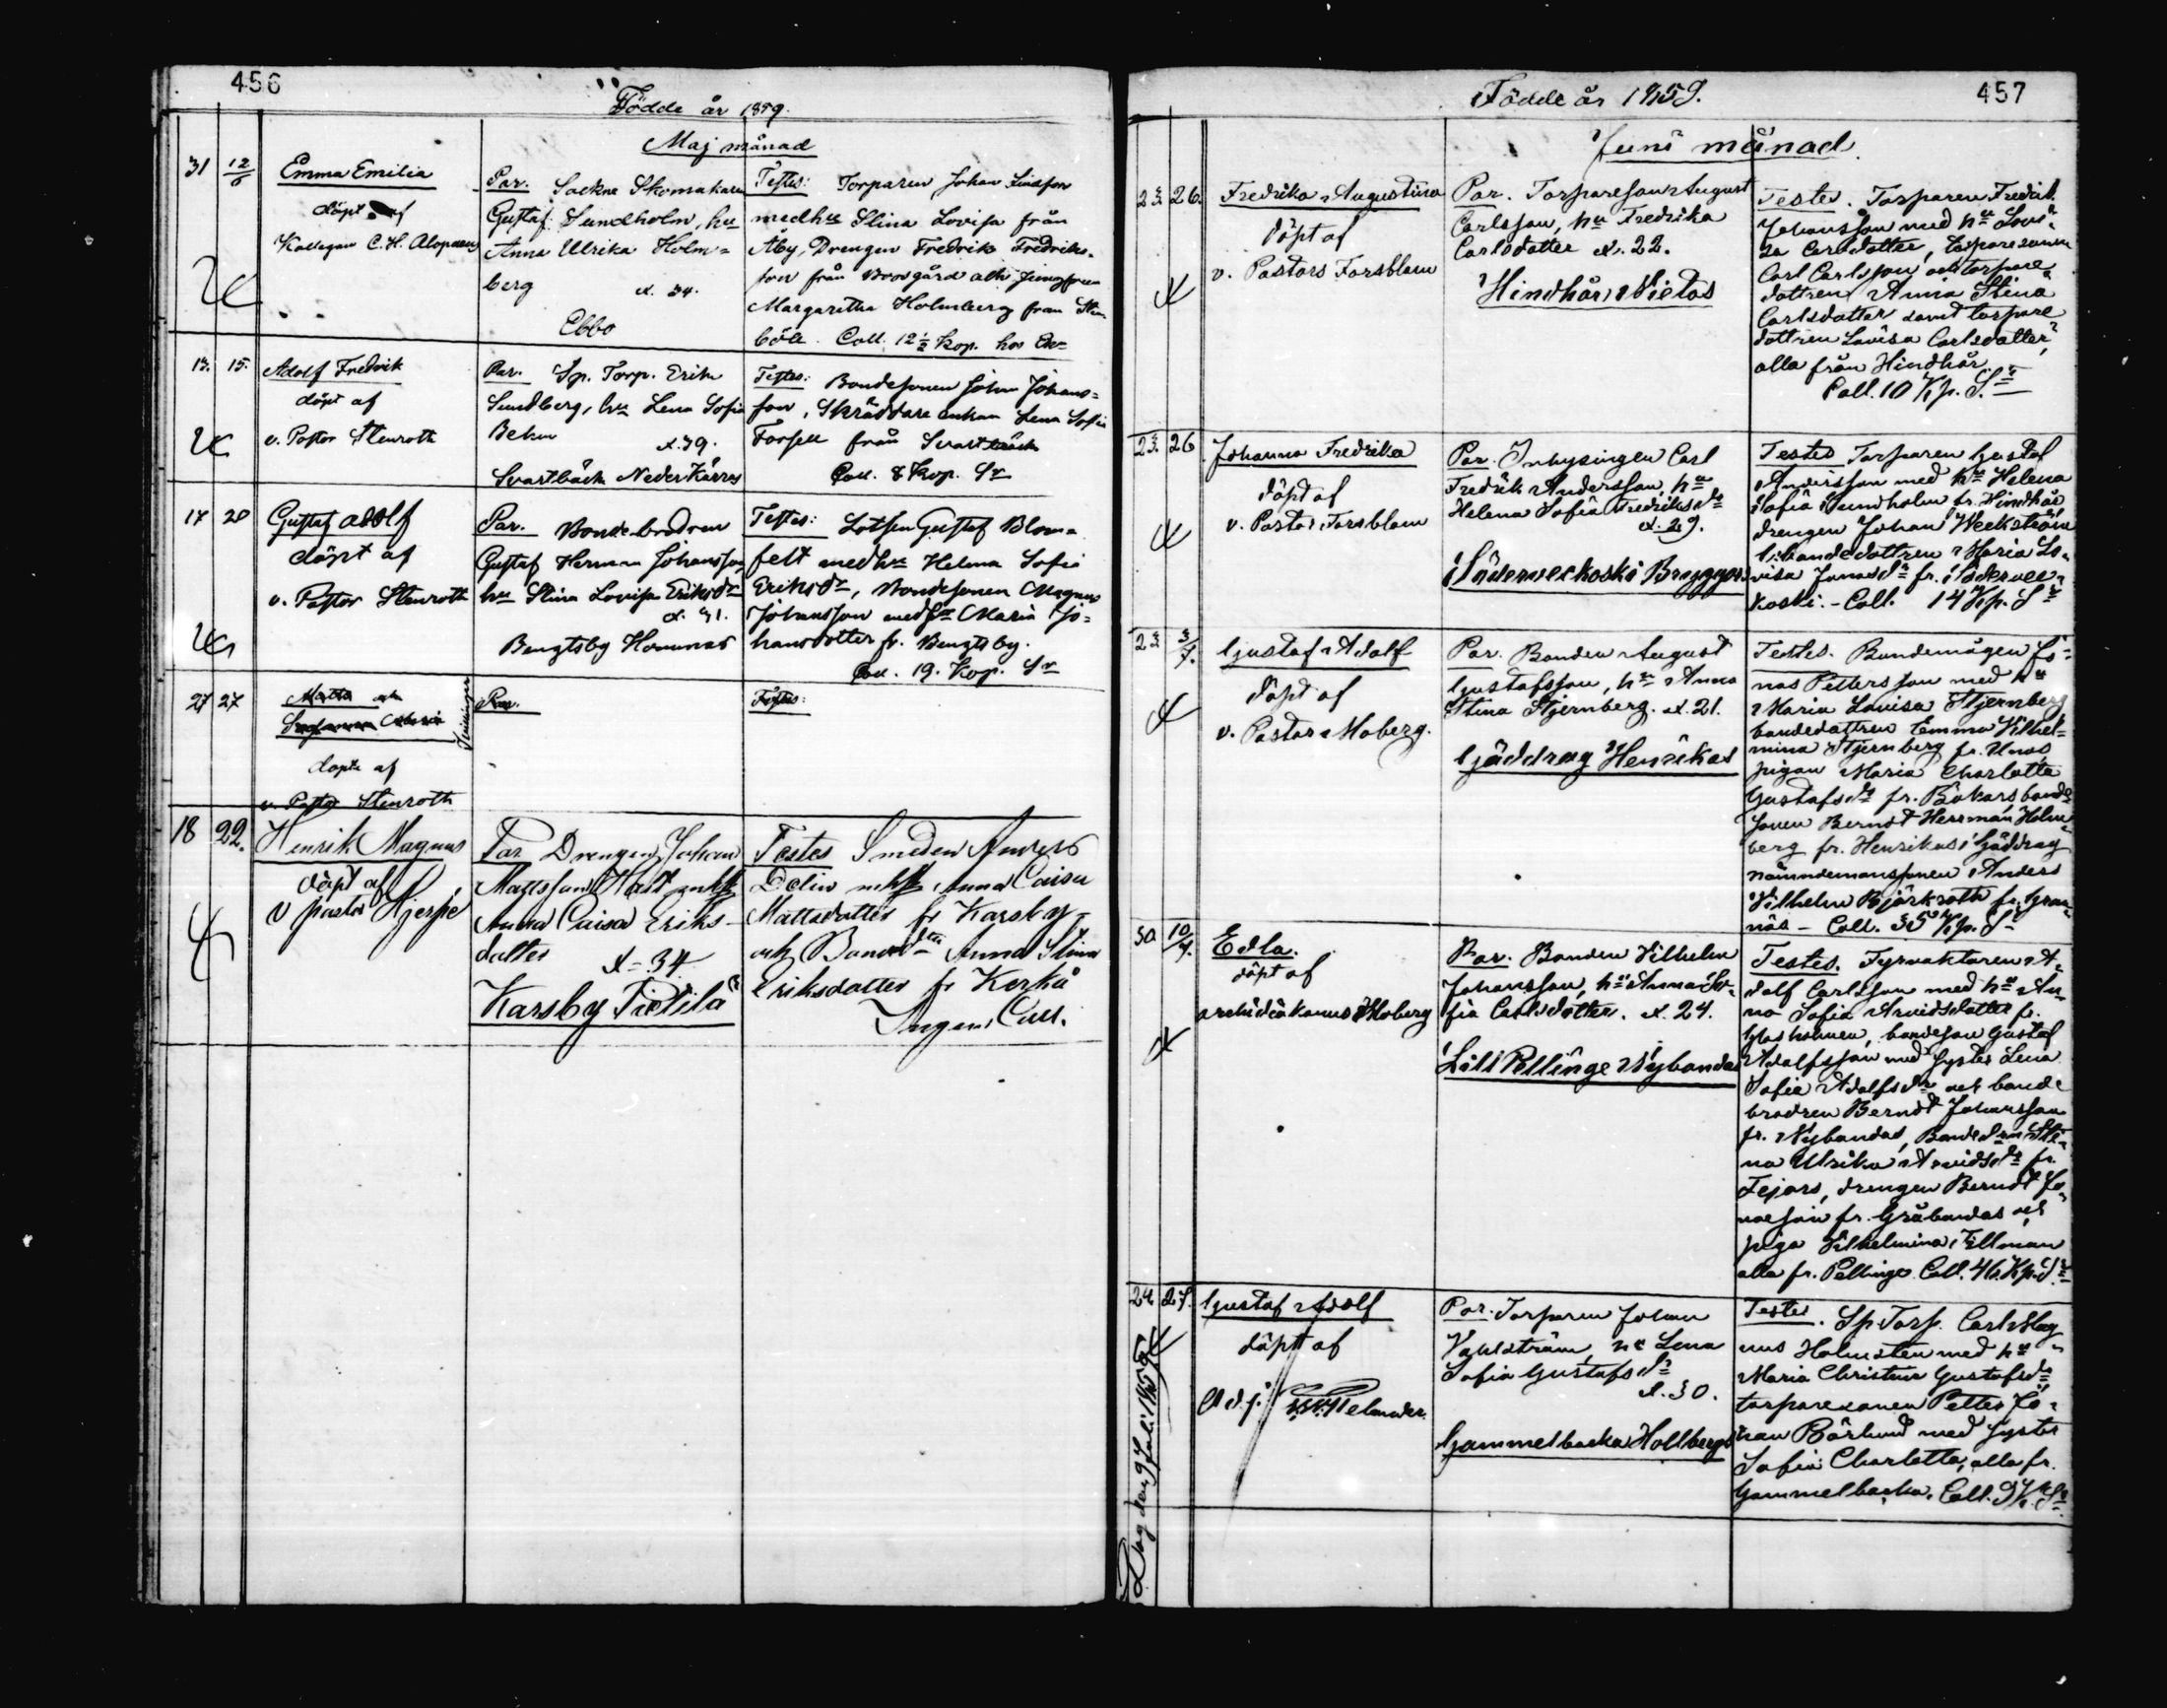 456
Födde år 1859.
Maj månad
31 12/6
Emma Emilia
döpt af
Kollegan C. H. Alopaeus
Par. Sockne Skomakaren
Gustaf Sundholm, hu
Anna Ulrika Holm=
berg æt. 34.
Ebbo
Testes: Torparen Johan Lindfors
med hu Stina Lovisa från
Åby, Drengen Fredrik Fredriks=
son från Borgård och Jungfrun
Margaretha Holmberg från Sten
böle. Coll. 12½ Kop. hos En=
13. 15.
Adolf Fredrik
döpt af
v. Pastor Stenroth
Par. Sp. Torp. Erik
Sundberg, hu Lena Sofia
Behm æt. 39.
Svartbäck Nederkärrs
Testes: Bondesonen Johan Johans=
son, Skräddare enkan Lena Sofia
Forsell från Svartbäck
Coll. 8 Kop. Sr
17 20
Gustaf Adolf
döpt af
v. Pastor Stenroth
Par. Bondebrodren
Gustaf Herman Johansson,
hu Stina Lovisa Eriksdr
æt. 31.
Bengtsby Hommas
Testes: Lotsen Gustaf Blom=
felt med hu Helena Sofia
Eriksdr, Bondesonen Magnus
Johansson med hu Maria Jo=
hansdotter fr. Bengtsby.
Coll. 19. Kop. Sr
27 27
Maria
Tvillingar
döpte af
v. Pastor Stenroth
Par.
Testes:
18 22.
Henrik Magnus
döpt af
v pastor Hjerpe
Par Drengen Johan
Mattsson
Anna Caisa Eriks-
datter æt 34
Karsby Pietilä
Testes Smeden Anders
Delin Anna Caisa
Mattsdatter fr Karsby
och Anna Stina
Eriksdatter fr Kerko
Ingen Coll.
Födde år 1859.
457
Juni månad.
23. 26.
Fredrika Augustina
döpt af
v. Pastors Forsblom
Par. Torparesonen August
Carlsson, hu Fredrika
Carlsdotter æt. 22.
Hindhår, Wietas
Testes. Torparen Fredrik
Johansson med hu Lovi=
sa Carlsdotter, torparesonen
Carl Carlsson och torpare
dottren Anna Stina
Carlsdotter samt torpare
dottren Lovisa Carlsdotter,
alla från Hindhår
Coll. 10 Kp. Sr
23. 26
Johanna Fredrika
döpt af
v. Pastor Forsblom
Par. Inhysingen Carl
Fredrik Andersson, hu
Helena Sofia Fredriksdr
æt. 29.
Söderveckoski Bryggars
Testes Torparen Gustaf
Andersson med hu Helena
Sofia Sundholm fr. Hindhår
drengen Johan Weckström
bondedottren Maria Lo=
visa Jonasdr fr. Södervec=
koski. - Coll. 14 Kp. Sr
23 3/7.
Gustaf Adolf
döpt af
v. Pastor Moberg.
Par. Bonden August
Gustafsson, hu Anna
Stina Stjernberg. æt. 21.
Gäddrag Henrikas
Testes. Bondemågen Jo=
nas Petterssson med hu
Maria Lovisa Stjernberg
bondedottren Emma Vilhel=
mina Stjernberg fr. Unos,
pigan Maria Charlotta
Gustafsdr fr. Bökars, bonde
sonen Berndt Herrman Holm=
berg fr. Henrikas i Gäddrag
nämndemanssonen Anders
Vilhelm Björkroth fr. Gran=
näs - Coll. 35 Kp. Sr
30 10/7.
Edla.
döpt af
archidiakonus Moberg
Par. Bonden Vilhelm
Johansson, hu Anna So=
fia Carlsdotter. æt. 24.
Lill Pellinge Nybondas
Testes. Fyrvaktaren A=
dolf Carlsson med hu An=
na Sofia Arvidsdotter fr.
Glosholmen, bondeson Gustaf
Adolfsson med syster Lena
Sofia Adolfsdr och bonde
brodren Berndt Johansson
fr. Nybondas, Sti=
na Ulrika Arvidsdr fr.
Tejars, drengen Berndt Jo=
nasson fr. Gråbondas och
piga Vilhelmina Tillman
alla fr. Pellinge. Coll. 46. Kp. Sr
24 27.
Gustaf Adolf
döpt af
Adj. Helander.
Dog den 9 Juli 1859
Par. Torparen Johan
Vahlström, hu Lena
Sofia Gustafsdr
æt. 30.
Gammelbacka Hollbergs
Testes. Sp. Torp. Carl Mag=
nus Holmsten med hu
Maria Christina Gustafsdr,
torparesonen Petter Jo=
han Börlund med syster
Sofia Charlotta, alla fr.
Gammelbacka. Coll. 9 K. Sr.